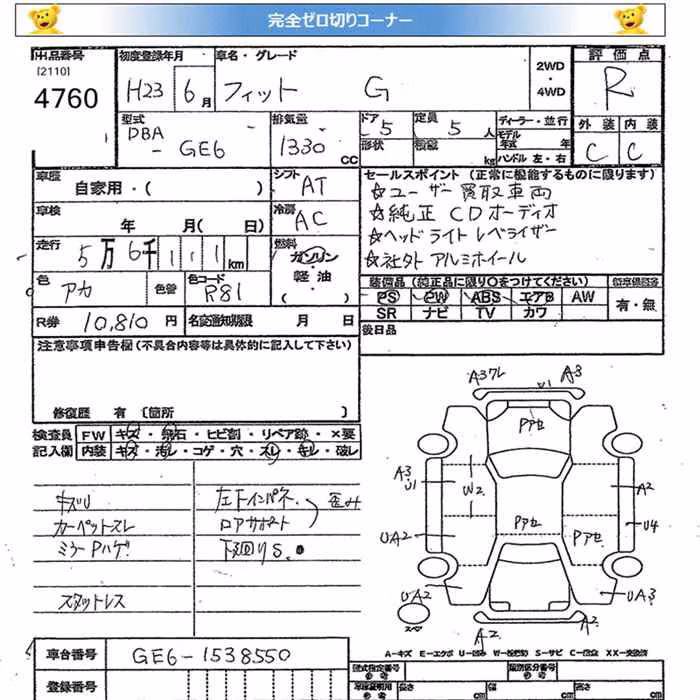 完全ゼロ切りコーナー
出品番号
[2110]
4760
初度登録年月
H23 6月
車名・グレード
フィット G
2WD
・
4WD
評価点
R
外装 内装
C C
型式
DBA
- GE6
排気量
1330 CC
ドア 5
形状
定員 5 人
積載 kg
ディーラー・並行
モデル
年式 年
ハンドル 左・右
車歴
自家用・( )
シフト AT
車検
年 月( 日)
冷房 AC
走行
5万6千111km
燃料
ガソリン
軽油
( )
色 アカ 色替
色コード R81
R券 10,810円
名変通知期限 月 日
セールスポイント (正常に機能するものに限ります)
☆ユーザー買取車両
☆純正CDオーディオ
☆ヘッドライトレベライザー
☆社外アルミホイール
装備品 (純正品に限り○をつけてください)
PS PW ABS エアB AW
SR ナビ TV カワ
有・無
後日品
注意事項申告欄 (不具合内容等は具体的に記入して下さい)
修復歴 有 〔箇所 〕
検査員 FW キズ・飛石・ヒビ割・リペア跡・×要
記入欄 内装 キズ・汚レ・コゲ・穴・スレ・キレ・破レ
キズU
カーペットスレ
ミラーPハゲ
スタットレス
左下インパネ
ロアサポート
歪み
下回りS.
A3ワレ U1 A3
Pアセ
A3
U1
W2
A2
U4
UA2
Pアセ
Pアセ
UA2
UA3
スペア
A2
A2
A-キズ E-エクボ U-凹み W-板影有 S-サビ C-腐食 XX-交換済
車台番号 GE6-1538550
登録番号
型式指定番号
類別区分番号
参考
長さ cm
幅 cm
高さ cm